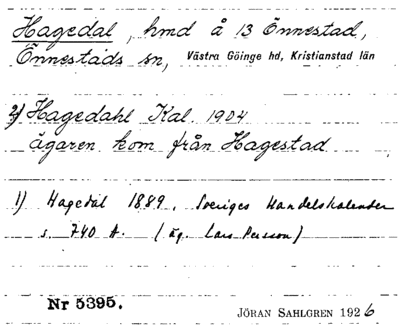 Hagedal, hmd å 13 Önnestad,
Önnestads sn, Västra Göinge hd, Kristianstad län
2) Hagedahl Kal. 1904
ägaren kom från Hagestad
1) Hagedal 1889. Sveriges Handelskalender
s. 740 A. (äg. Lars Persson)
Nr 5395.
JÖRAN SAHLGREN 1926